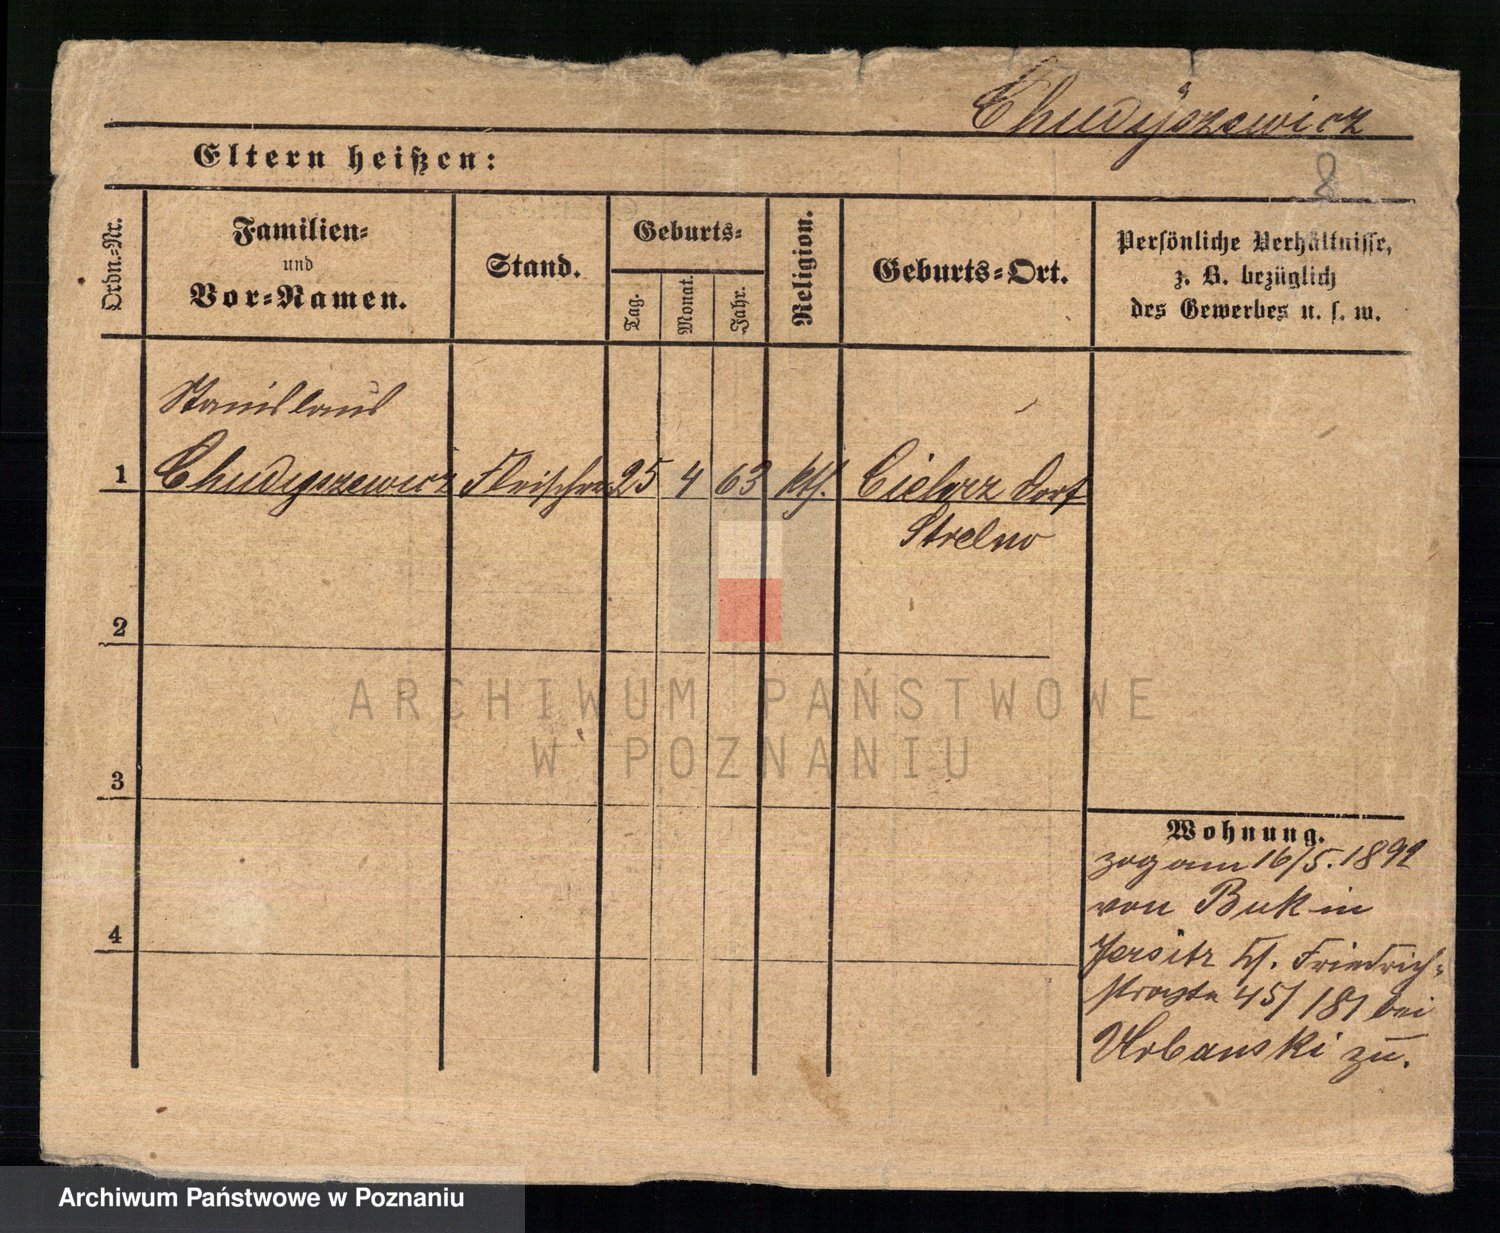 Chudyszewicz
8
Eltern heißen:
Ordn.-Nr.
Familien-
und
Vor-Namen.
Stand.
Geburts-
Tag.
Monat.
Jahr.
Religion.
Geburts-Ort.
Persönliche Verhältnisse,
z. B. bezüglich
des Gewerbes u. s. w.
Stanislaus
1 Chudyszewicz Fleischer 25 4 63 kth. Cielerz Dorf
Strelno
2
3
4
Wohnung.
zog am 16/5. 1892
von Buk in
Jersitz Friedrich-
straße 45/181 bei
Urbanski zu.
ARCHIWUM PAŃSTWOWE
W POZNANIU
Archiwum Państwowe w Poznaniu